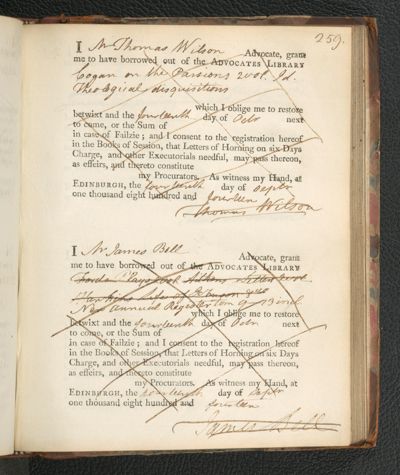 259.
I Mr Thomas Wilson Advocate, grant
me to have borrowed out of the ADVOCATES LIBRARY
Cogan on the Passions 2 vol.
Theological disquisitions
which I oblige me to restore
betwixt and the fourteenth day of Octr next
to come, or the Sum of
in case of Failzie; and I consent to the registration hereof
in the Books of Session, that Letters of Horning on six Days
Charge, and other Executorials needful, may pass thereon,
as effeirs, and thereto constitute
my Procurators. As witness my Hand, at
EDINBURGH, the fourteenth day of Septr
one thousand eight hundred and fourteen
Thomas Wilson
I Mr James Bell Advocate, grant
me to have borrowed out of the ADVOCATES LIBRARY
New Annual Register
which I oblige me to restore
betwixt and the fourteenth day of Octr next
to come, or the Sum of
in case of Failzie; and I consent to the registration hereof
in the Books of Session, that Letters of Horning on six Days
Charge, and other Executorials needful, may pass thereon,
as effeirs, and thereto constitute
my Procurators. As witness my Hand, at
EDINBURGH, the fourteenth day of Septr
one thousand eight hundred and fourteen
James Bell